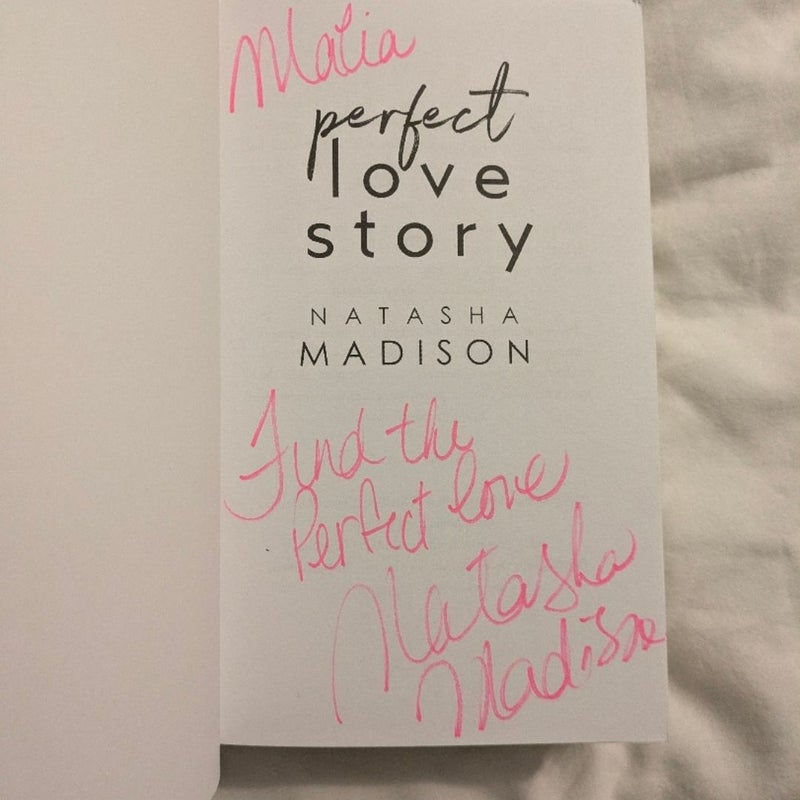 Malia
perfect
love
story
NATASHA
MADISON
Find the
Perfect love
Natasha
Madison